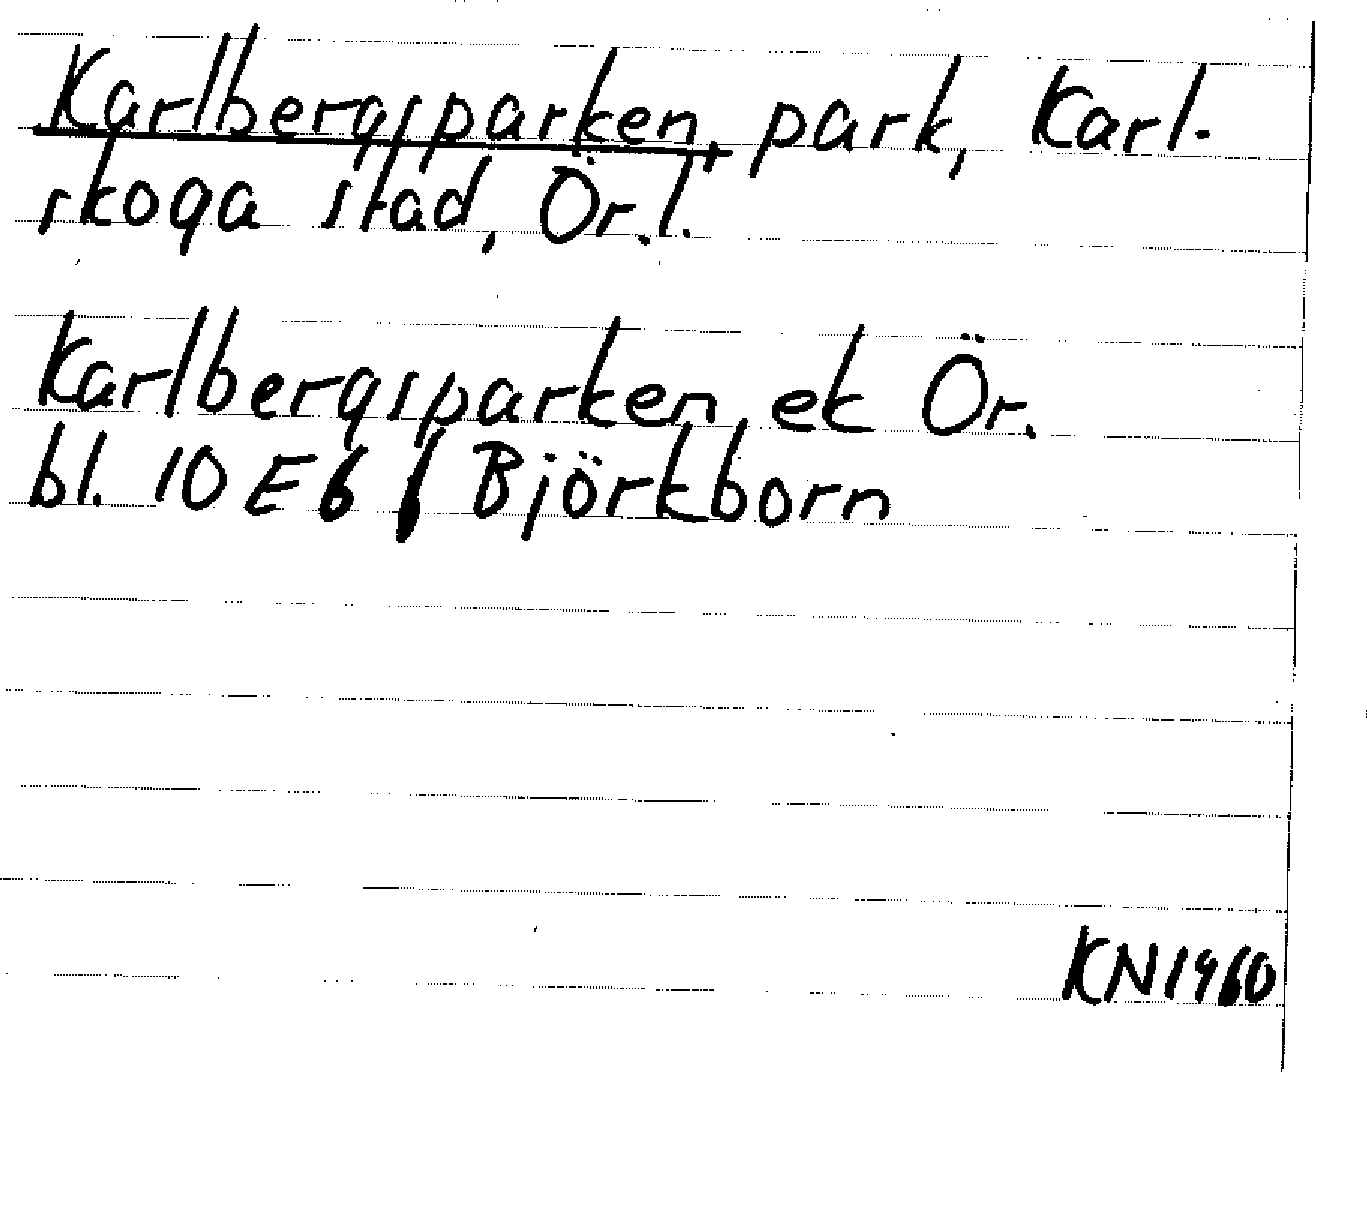 Karlbergsparken, park, Karl-
skoga stad, Ör.l.
Karlbergsparken ek Ör.
bl. 10 E 6 f Björkborn
KN 1960